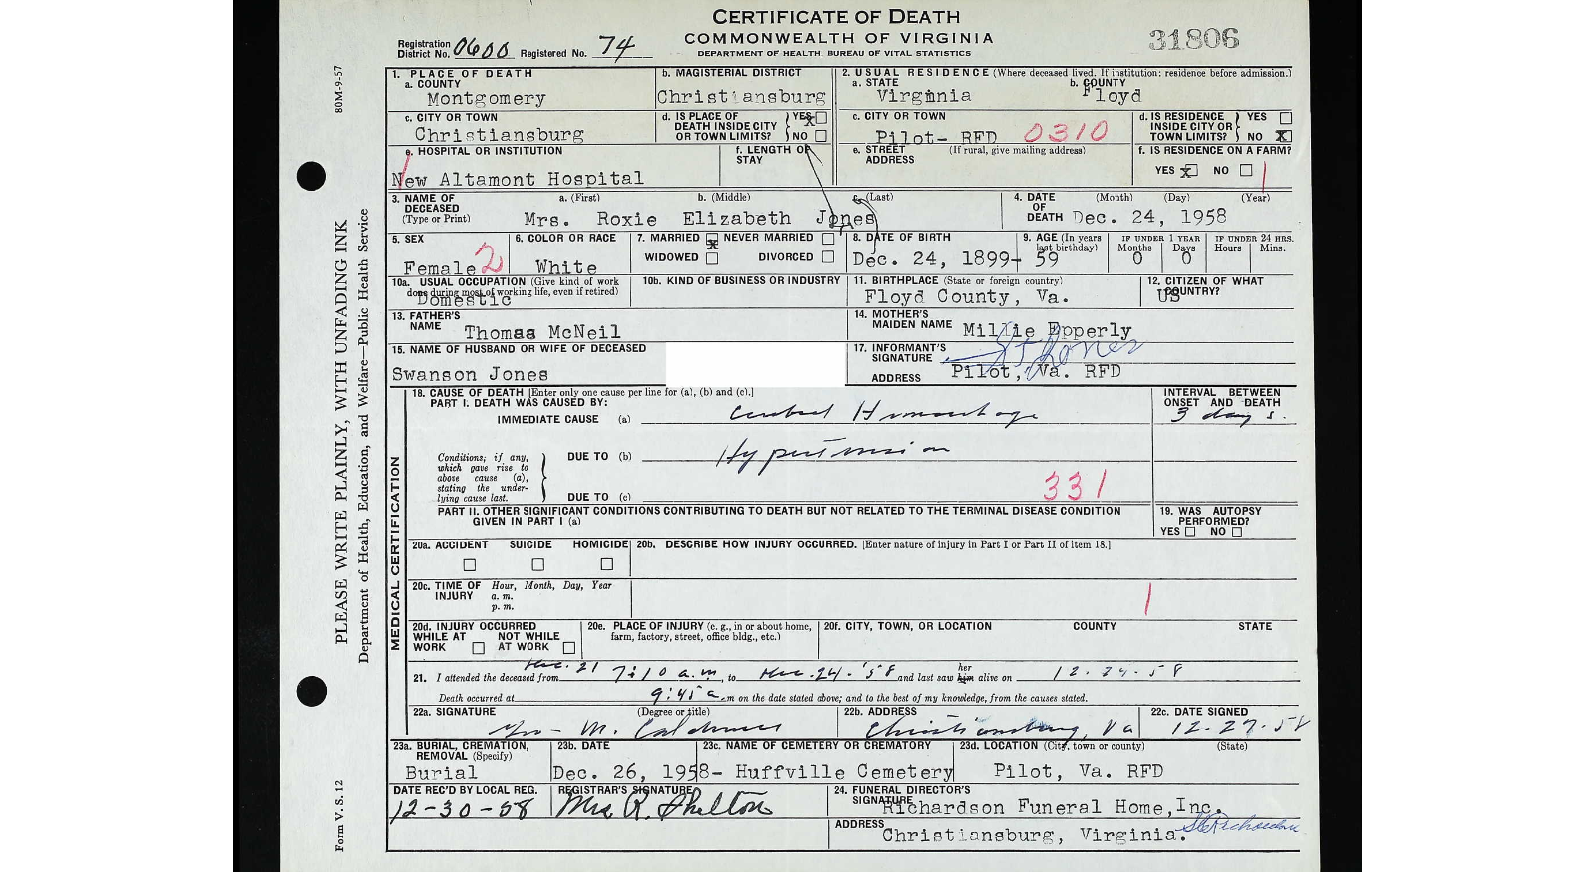 CERTIFICATE OF DEATH
COMMONWEALTH OF VIRGINIA
DEPARTMENT OF HEALTH BUREAU OF VITAL STATISTICS
31806
Registration District No. 0600 Registered No. 74
80M-9-57
PLEASE WRITE PLAINLY, WITH UNFADING INK
Department of Health, Education, and Welfare—Public Health Service
Form V. S. 12
1. PLACE OF DEATH
a. COUNTY
Montgomery
b. MAGISTERIAL DISTRICT
Christiansburg
2. USUAL RESIDENCE (Where deceased lived. If institution: residence before admission.)
a. STATE
Virginia
b. COUNTY
Floyd
c. CITY OR TOWN
Christiansburg
d. IS PLACE OF DEATH INSIDE CITY OR TOWN LIMITS? YES X NO
c. CITY OR TOWN
Pilot- RFD 0310
d. IS RESIDENCE INSIDE CITY OR TOWN LIMITS? YES NO X
e. HOSPITAL OR INSTITUTION
New Altamont Hospital
f. LENGTH OF STAY
e. STREET ADDRESS (If rural, give mailing address)
f. IS RESIDENCE ON A FARM?
YES X NO
3. NAME OF DECEASED (Type or Print)
a. (First) b. (Middle) c. (Last)
Mrs. Roxie Elizabeth Jones
4. DATE OF DEATH (Month) (Day) (Year)
Dec. 24, 1958
5. SEX
Female 2
6. COLOR OR RACE
White
7. MARRIED X NEVER MARRIED
WIDOWED DIVORCED
8. DATE OF BIRTH
Dec. 24, 1899-
9. AGE (In years last birthday)
59
IF UNDER 1 YEAR Months Days
0 0
IF UNDER 24 HRS. Hours Mins.
10a. USUAL OCCUPATION (Give kind of work done during most of working life, even if retired)
Domestic
10b. KIND OF BUSINESS OR INDUSTRY
11. BIRTHPLACE (State or foreign country)
Floyd County, Va.
12. CITIZEN OF WHAT COUNTRY?
US
13. FATHER'S NAME
Thomas McNeil
14. MOTHER'S MAIDEN NAME
Millie Epperly
15. NAME OF HUSBAND OR WIFE OF DECEASED
Swanson Jones
17. INFORMANT'S SIGNATURE
Jones
ADDRESS Pilot, Va. RFD
MEDICAL CERTIFICATION
18. CAUSE OF DEATH [Enter only one cause per line for (a), (b) and (c).]
PART I. DEATH WAS CAUSED BY:
INTERVAL BETWEEN ONSET AND DEATH
IMMEDIATE CAUSE (a) Cerebral Hemorrhage
3 days.
Conditions, if any, which gave rise to above cause (a), stating the underlying cause last.
DUE TO (b) Hypertension
DUE TO (c)
331
PART II. OTHER SIGNIFICANT CONDITIONS CONTRIBUTING TO DEATH BUT NOT RELATED TO THE TERMINAL DISEASE CONDITION GIVEN IN PART I (a)
19. WAS AUTOPSY PERFORMED?
YES NO
20a. ACCIDENT SUICIDE HOMICIDE
20b. DESCRIBE HOW INJURY OCCURRED. [Enter nature of injury in Part I or Part II of Item 18.]
20c. TIME OF INJURY Hour, Month, Day, Year
a. m.
p. m.
20d. INJURY OCCURRED
WHILE AT WORK NOT WHILE AT WORK
20e. PLACE OF INJURY (e. g., in or about home, farm, factory, street, office bldg., etc.)
20f. CITY, TOWN, OR LOCATION COUNTY STATE
21. I attended the deceased from Dec. 21 7:10 a.m, to Dec. 24 - '58 and last saw her him alive on 12-24-58
Death occurred at 9:45 a.m on the date stated above; and to the best of my knowledge, from the causes stated.
22a. SIGNATURE (Degree or title)
22b. ADDRESS
Christiansburg, Va
22c. DATE SIGNED
12-27-58
23a. BURIAL, CREMATION, REMOVAL (Specify)
Burial
23b. DATE
Dec. 26, 1958-
23c. NAME OF CEMETERY OR CREMATORY
Huffville Cemetery
23d. LOCATION (City, town or county) (State)
Pilot, Va. RFD
DATE REC'D BY LOCAL REG.
12-30-58
REGISTRAR'S SIGNATURE
Mrs R. Shelton
24. FUNERAL DIRECTOR'S SIGNATURE
Richardson Funeral Home, Inc.
ADDRESS
Christiansburg, Virginia.